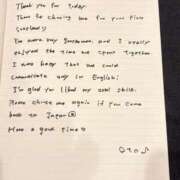 Thank you for today.
Thank to chosing me for your first
You were very gentleman, and I really
enjoyed the time we spent together.
I was happy that we could
communicate easy in English!
I'm glad you liked my oral skills.
Please choose me again if you come
back to Japan
Have a good time